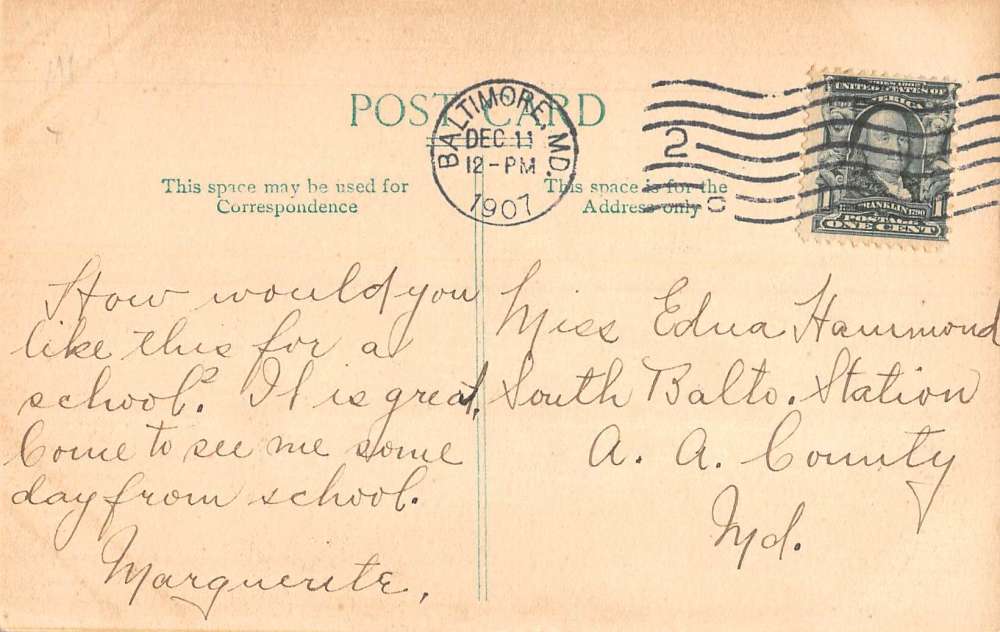 POST CARD
BALTIMORE, MD.
DEC 11
12-PM
1907
2
C
UNITED STATES OF
AMERICA
1 FRANKLIN 1790 1
POSTAGE
ONE CENT
This space may be used for
Correspondence
This space is for the
Address only
How would you
like this for a
school? It is great,
Come to see me some
day from school.
Marguerite,
Miss Edna Hammond
South Balto. Station
A. A. County
Md.